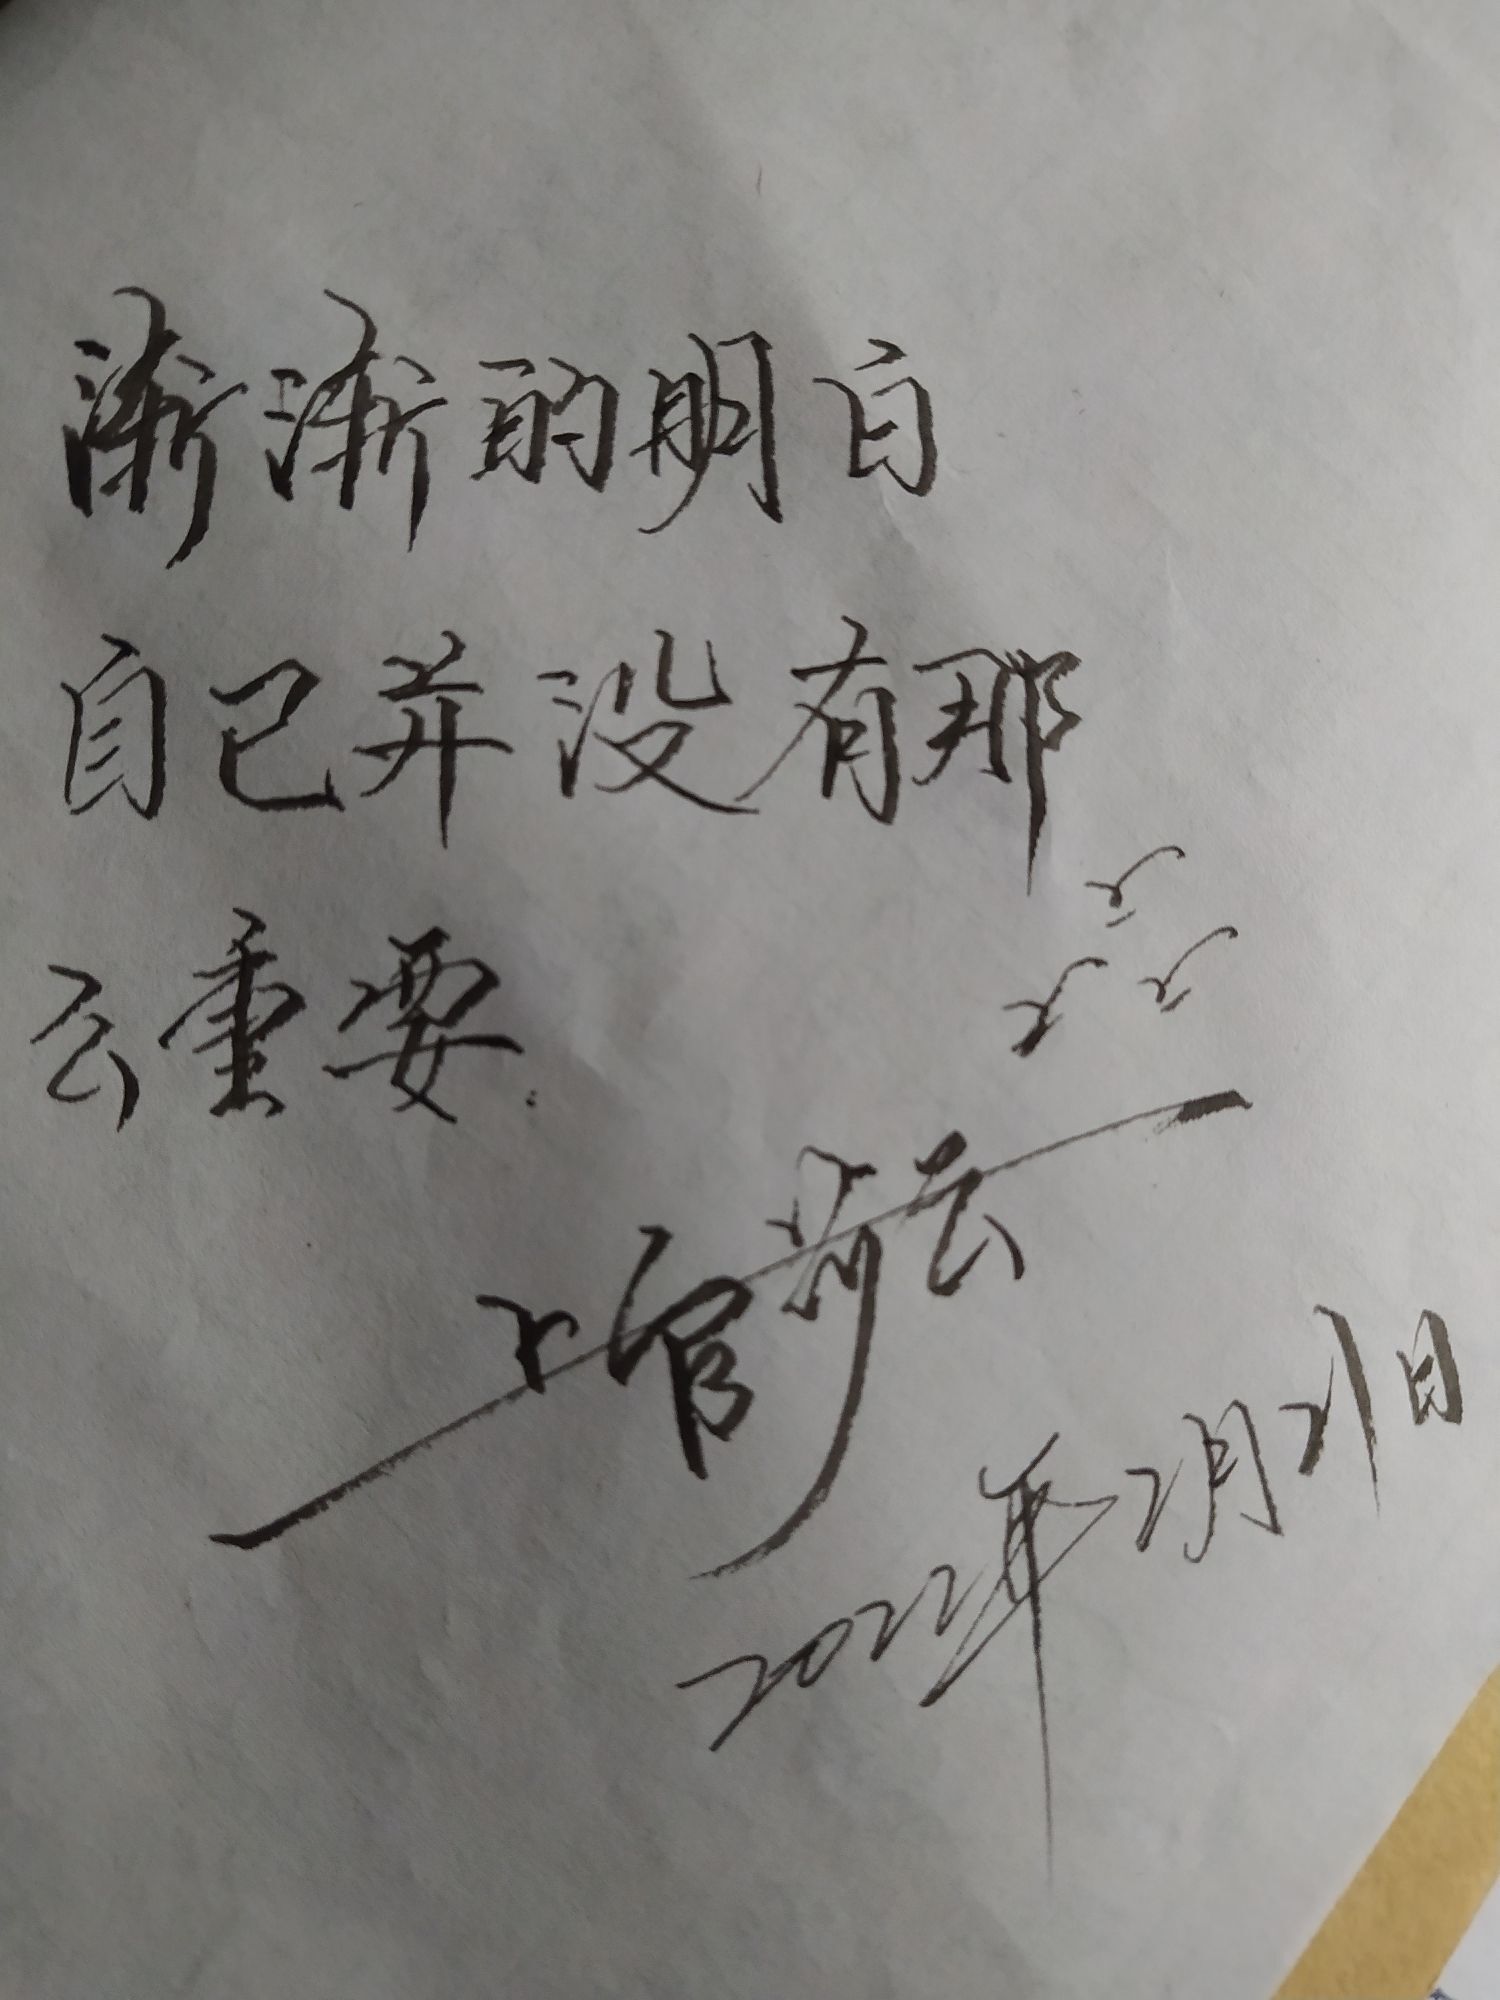 渐渐的明白
自己并没有那
么重要.
上官
云
2022年2月21日